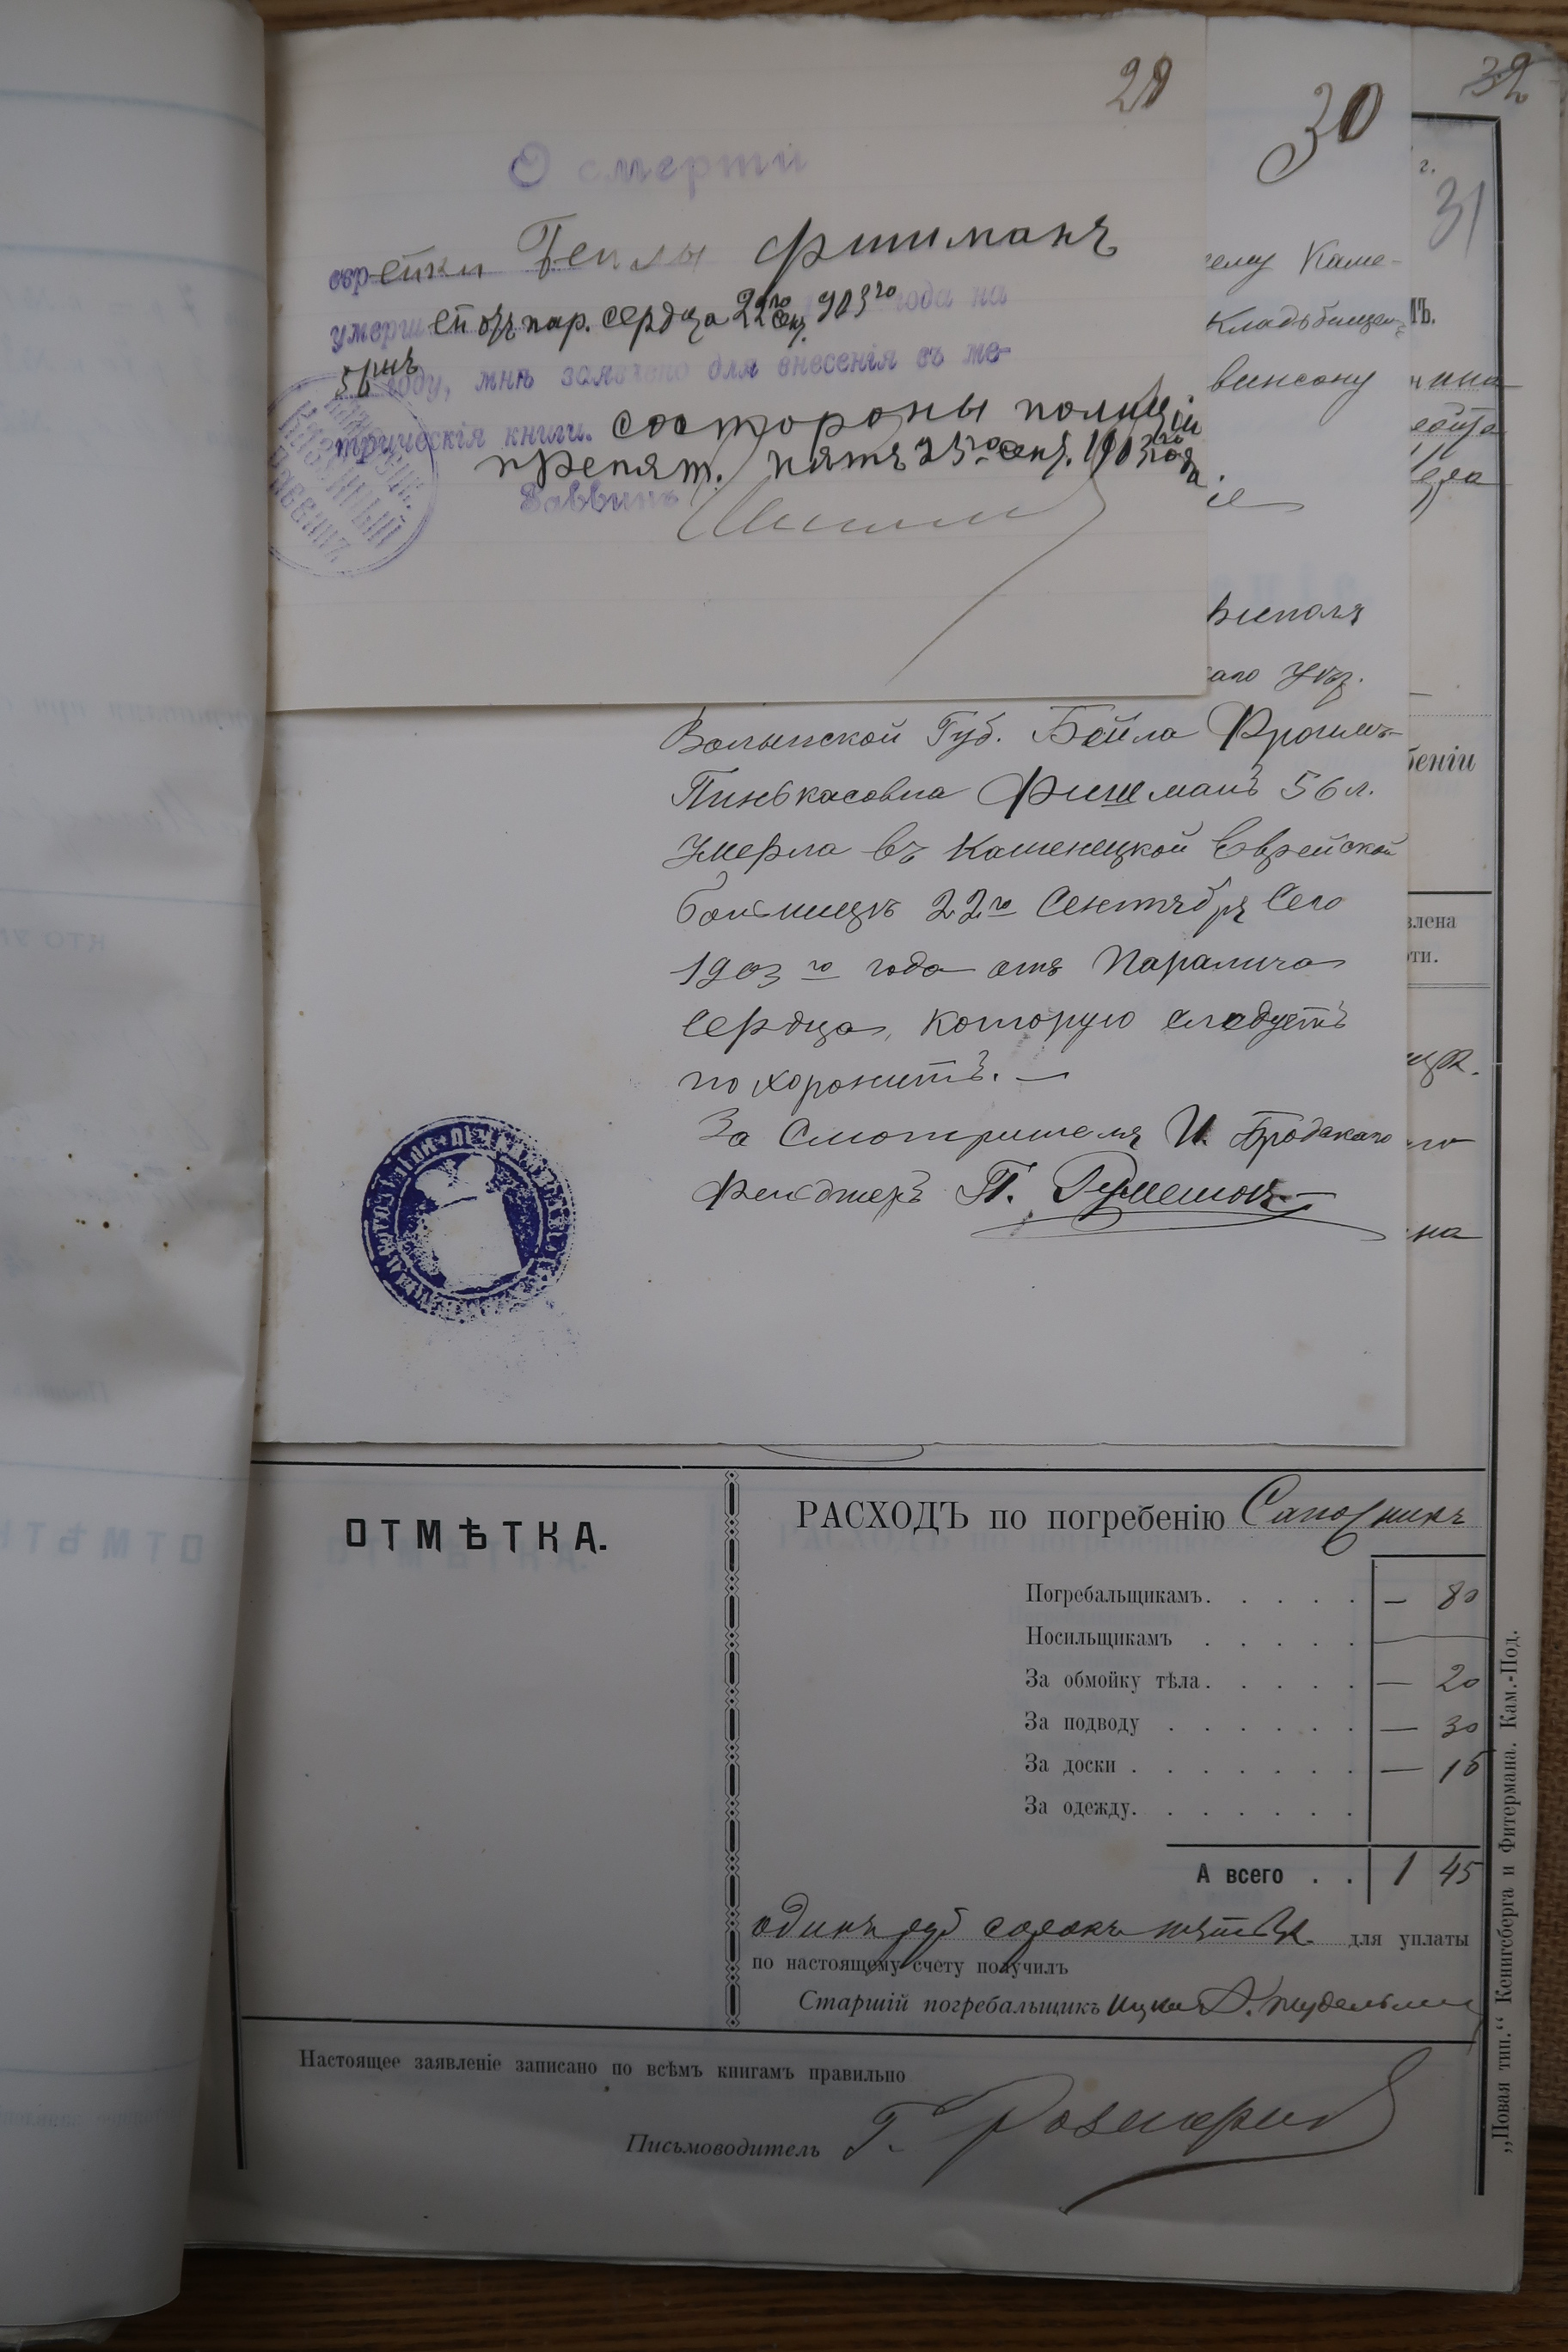 29
О смерти
еврейки Бейлы Фишманъ
умершей отъ пар. сердца 22го Сент. 903го года на
56мъ году, мнѣ заявлено для внесенія въ ме-
трическія книги. со стороны полиціи
препят. нѣтъ 23го Сент. 1903 года
Раввинъ
КАЗЕННЫЙ
РАВВИНЪ
30
ему Каме-
Кладбищен-
винсону
іе
аго Уѣз.
Волынской Губ. Бейла Фроимъ-
Пинькасовна Фишманъ 56 л.
Умерла въ Каменецкой Еврейской
больницѣ 22го Сентября Сего
1903го года отъ Паралича
Сердца, которую слѣдуетъ
похоронить. —
За Смотрителя И. Бродскаго
Фельдшеръ П.
32
г.
31
беніи
влена
рти.
на
ОТМѢТКА.
РАСХОДЪ по погребенію Сапожникъ
Погребальщикамъ. . . . . — 80
Носильщикамъ . . . . . —
За обмойку тѣла. . . . . — 20
За подводу . . . . . — 30
За доски . . . . . . — 15
За одежду. . . . . .
А всего . . 1 45
одинъ руб сорокъ пять к. для уплаты
по настоящему счету получилъ
Старшій погребальщикъ Ицко
Настоящее заявленіе записано по всѣмъ книгамъ правильно
Письмоводитель Г.
„Новая тип.“ Кенигсберга и Фитермана. Кам.-Под.